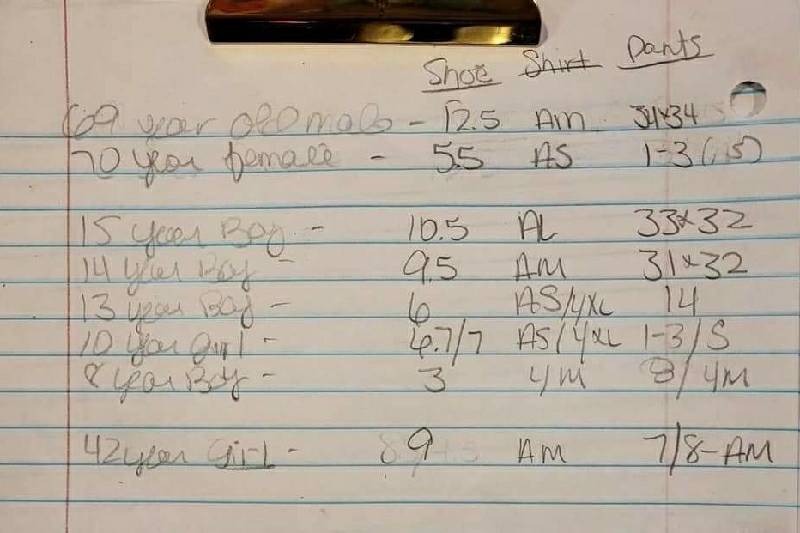 Shoe Shirt Pants
69 year old male - 12.5 AM 34x34
70 year female - 5.5 AS 1-3 (S)
15 year Boy - 10.5 AL 33x32
14 year Boy - 9.5 AM 31x32
13 year Boy - 6 AS/YXL 14
10 year girl - 6.7/7 AS/YXL 1-3/S
8 year Boy - 3 YM 8/YM
42 year Girl - 9 AM 7/8-AM